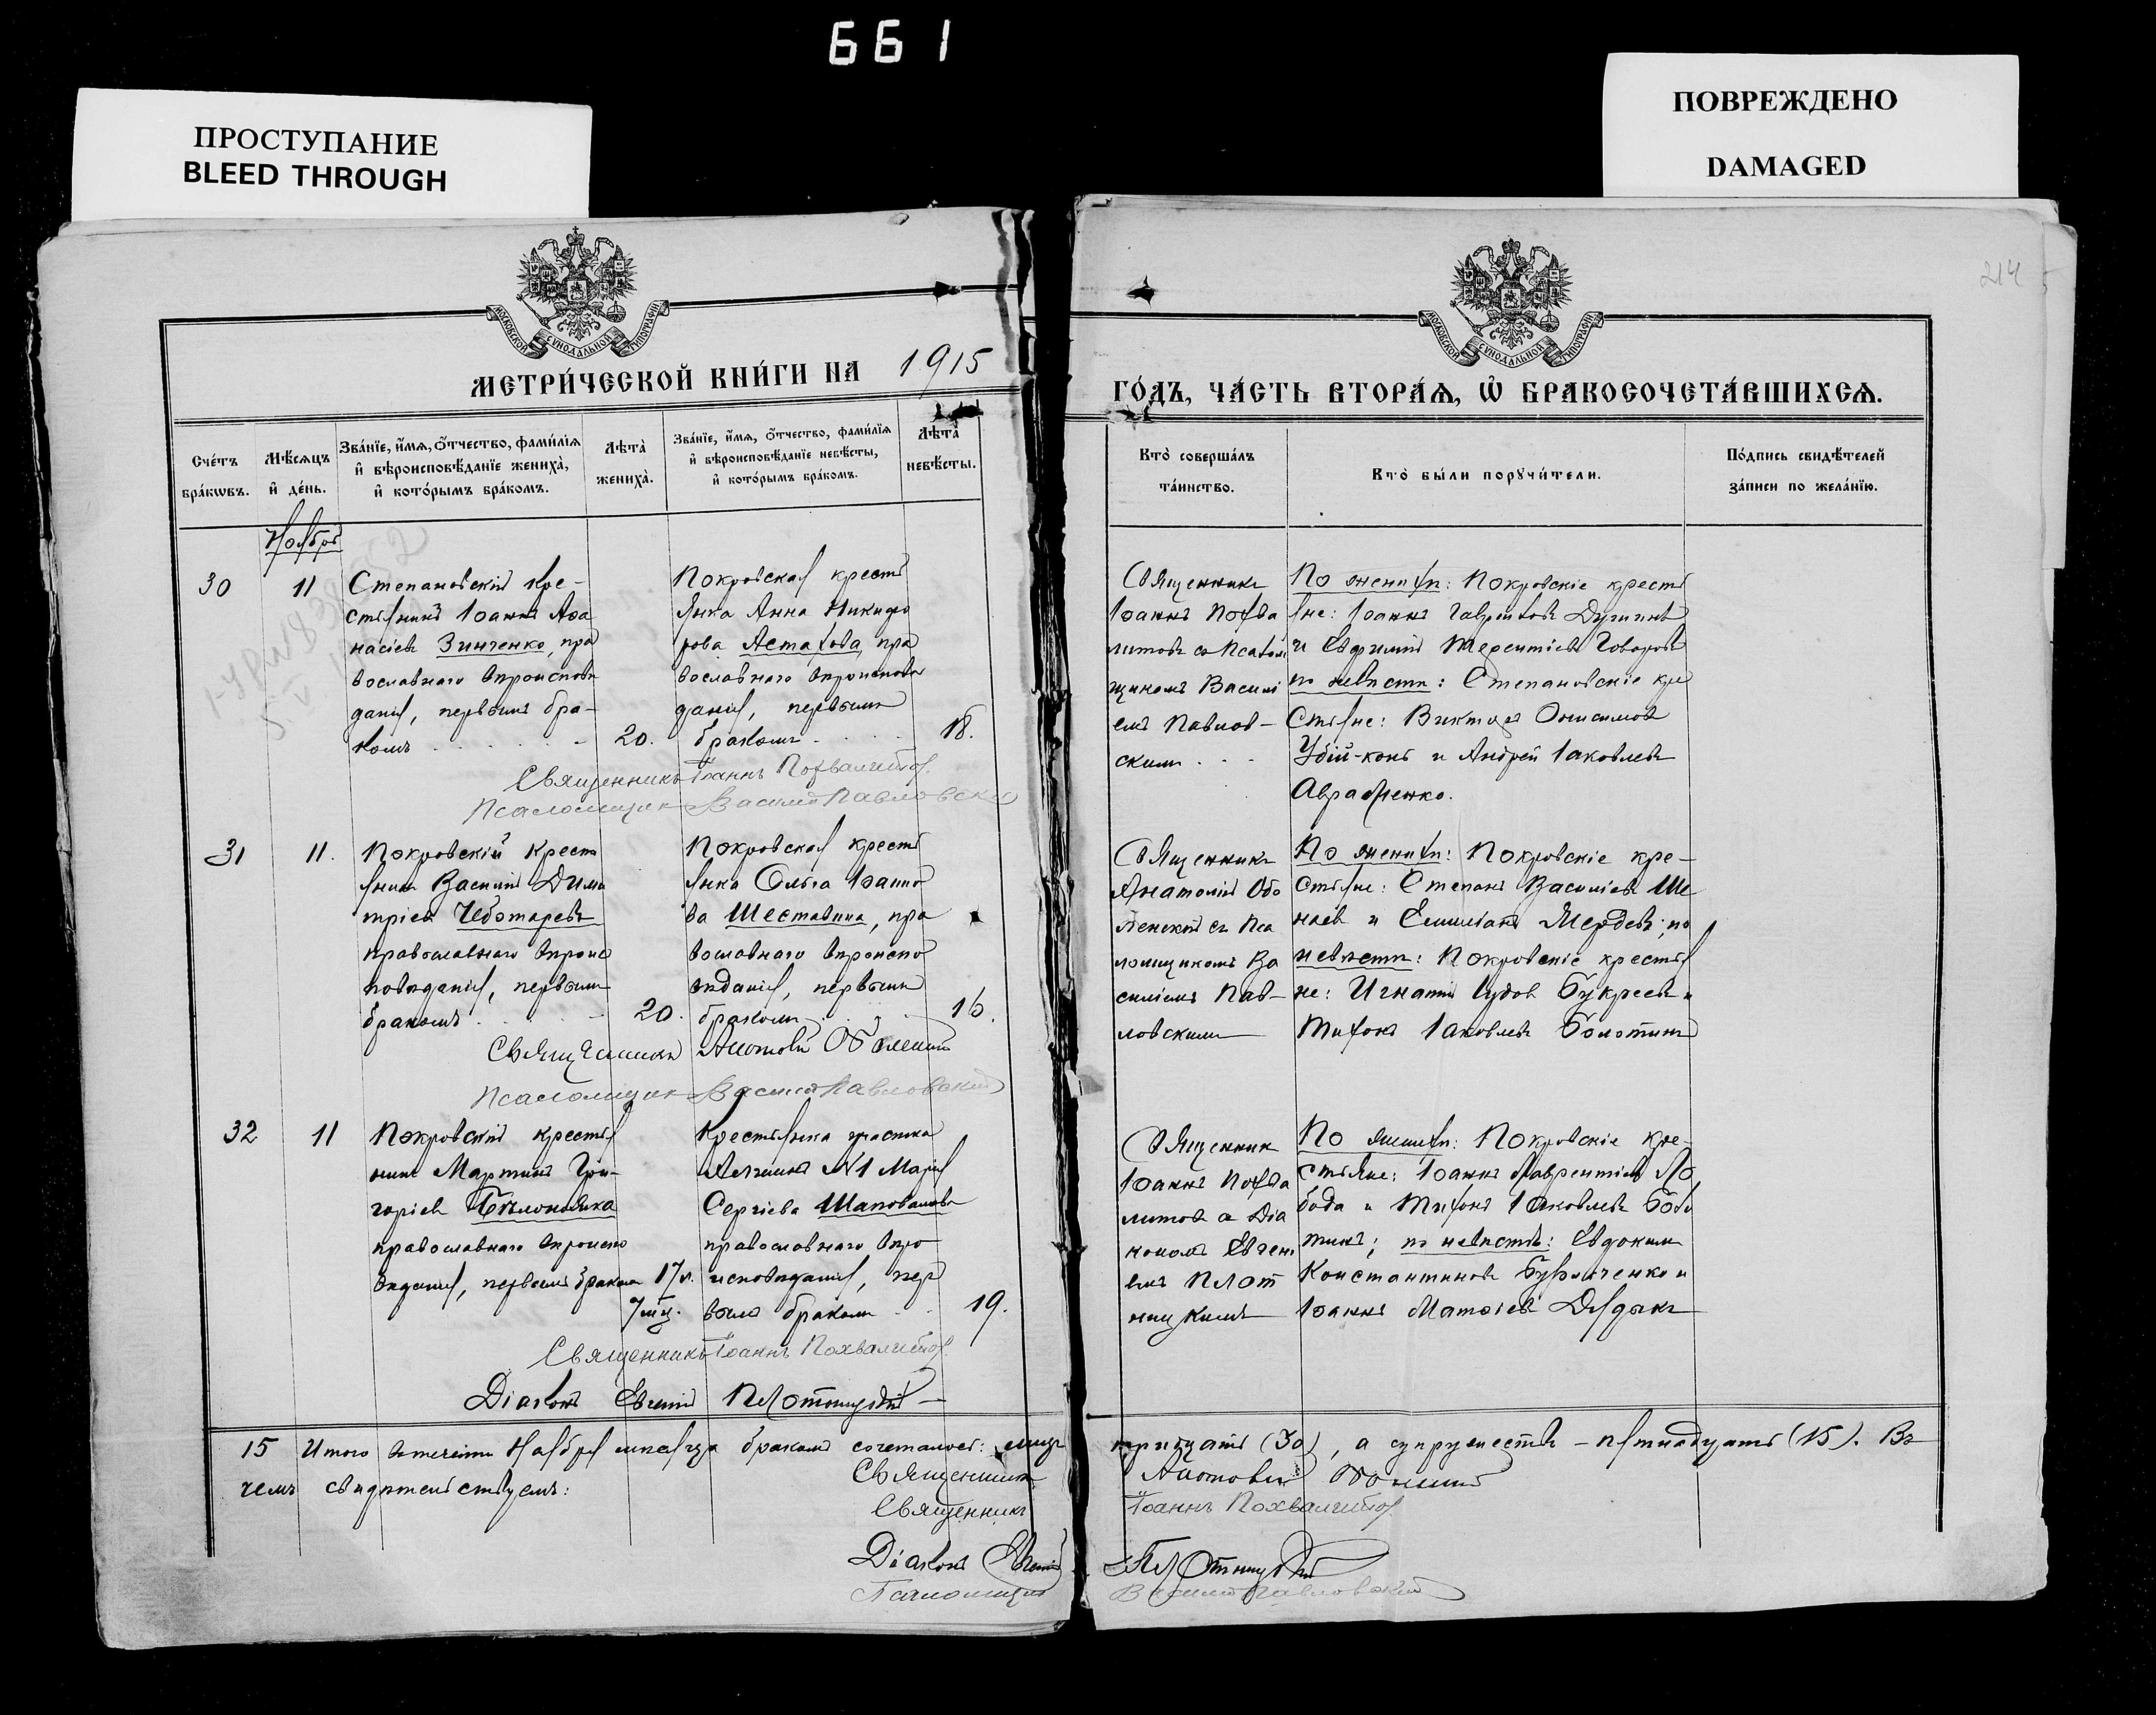 661
ПРОСТУПАНИЕ
BLEED THROUGH
ПОВРЕЖДЕНО
DAMAGED
214
МОСКОВСКОЙ СѴНОДАЛЬНОЙ ТИПОГРАФІИ
МОСКОВСКОЙ СѴНОДАЛЬНОЙ ТИПОГРАФІИ
МЕТРИ́ЧЕСКОЙ КНИ́ГИ НА 1915
ГО́ДЪ, ЧА́СТЬ ВТОРА́Ѧ, Ѡ҆ БРАКОСОЧЕТА́ВШИХСѦ.
Сче́тъ
бра́кѡвъ.
Мѣ́сѧцъ
и҆ де́нь.
Зва́нїе, и҆́мѧ, ѻ҆́тчество, фами́лїѧ
и҆ вѣроисповѣ́данїе жениха̀,
и҆ кото́рымъ бра́комъ.
Лѣта̀
жениха̀.
Зва́нїе, и҆́мѧ, ѻ҆́тчество, фами́лїѧ
и҆ вѣроисповѣ́данїе невѣ́сты,
и҆ кото́рымъ бра́комъ.
Лѣта̀
невѣ́сты.
Кто̀ соверша́лъ
та́инство.
Кто̀ бы́ли порꙋчи́тели.
По́дпись свидѣ́телей
за́писи по жела́нїю.
Ноябрь
30
11
Степановскій кре-
стьянинъ Іоаннъ Аѳа
насіевъ Зинченко, пра
вославнаго вѣроисповѣ
данія, первымъ бра-
комъ
20.
Покровская кресть
янка Анна Никифо
рова Астахова, пра
вославнаго вѣроисповѣ
данія, первымъ
бракомъ
18.
Священникъ
Іоаннъ Похва
литовъ съ Псалом
щикомъ Василі
емъ Павлов-
скимъ
По женихѣ: Покровскіе кресть
яне: Іоаннъ Гавріиловъ
и Евфимій Терентіевъ Говоровъ
по невѣстѣ: Степановскіе кре
стьяне: Викторъ Онисимовъ
Убій-конь и Андрей Іаковлевъ
Авраменко.
Священникъ Іоаннъ Похвалитов.
Псаломщикъ Василій Павловский
31
11.
Покровскій кресть
янинъ Василій Дими
тріевъ Чеботаревъ
православнаго вѣроис
повѣданія, первымъ
бракомъ
20.
Покровская кресть
янка Ольга Іоанно
ва Шеставина, пра
вославнаго вѣроиспо
вѣданія, первымъ
бракомъ
16.
Священникъ
Анатолій Обо
ленскій съ Пса
ломщикомъ Ва
силіемъ Пав-
ловскимъ
По женихѣ: Покровскіе кре-
стьяне: Степанъ Василіевъ Ше
и Емиліанъ; по
невѣстѣ: Покровскіе крестья
не: Игнатій Іудовъ Букреевъ и
Тихонъ Іаковлевъ Болотинъ
Священникъ Анатолій Оболенскій
Псаломщикъ Василій Павловский
32
11
Покровскій крестья
нинъ Мартинъ Гри-
горіевъ
православнаго вѣроиспо
вѣданія, первымъ бракомъ
17 л.
7 мц.
Крестьянка участка
№1 Марія
Сергіева Шаповалова
православнаго вѣро
исповѣданія, пер
вымъ бракомъ
19.
Священникъ
Іоаннъ Похва
литовъ съ Діа
кономъ Евгені
емъ Плот
ницкимъ
По женихѣ: Покровскіе кре-
стьяне: Іоаннъ Лаврентіевъ Ло
бода и Тихонъ Іаковлевъ Боло
тинъ; по невѣстѣ: Евдокимъ
Константиновъ и
Іоаннъ Матѳіевъ
Священникъ Іоаннъ Похвалитов.
Діаконъ Евгеній Плотницкій
15 Итого втеченіи Ноября мѣсяца бракомъ сочеталось: лицъ
тридцать (30), а супружествъ - пятнадцать (15). Въ
чемъ свидѣтельствуемъ:
Священникъ Анатолій Оболенскій
Священникъ Іоаннъ Похвалитов
Діаконъ Евгеній Плотницкій
Псаломщикъ Василій Павловский